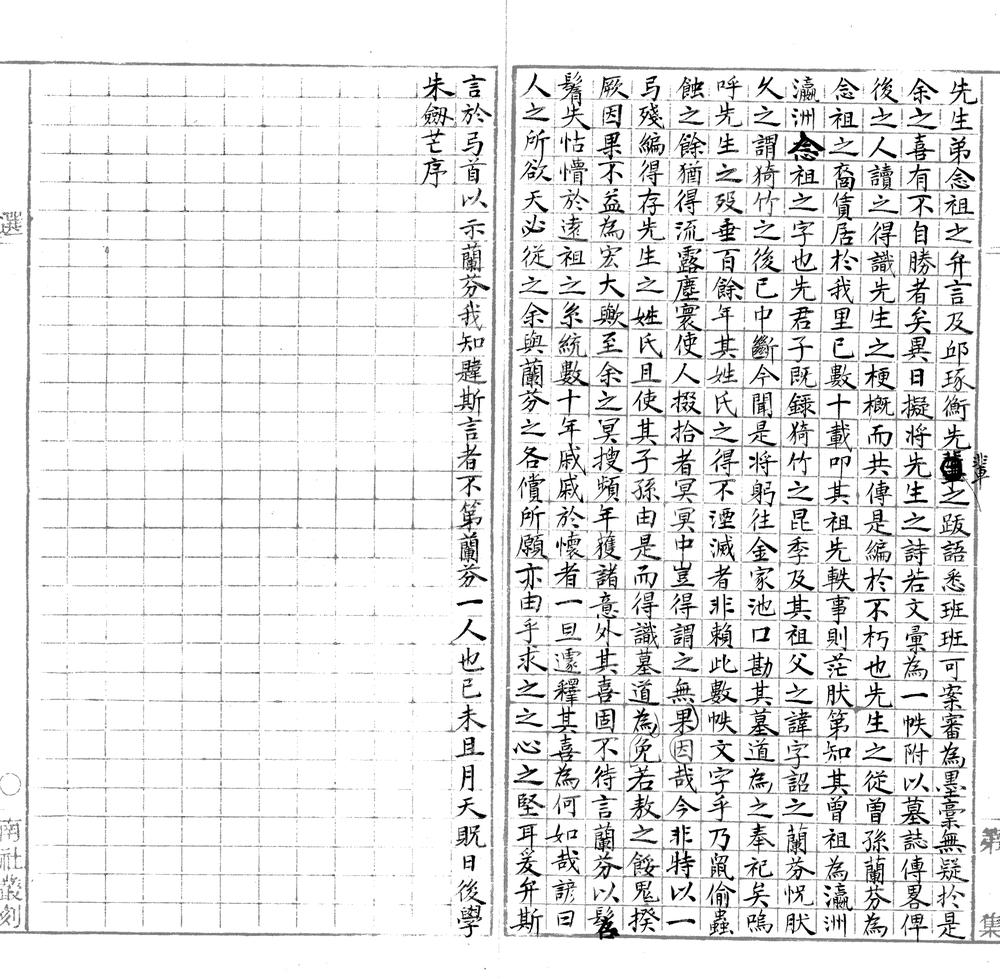 先生弟念祖之弁言及邱琢衡先輩之跋語悉班班可案審為墨稾無疑於是
余之喜有不自勝者矣異日擬將先生之詩若文彙為一帙附以墓誌傳畧俾
後之人讀之得識先生之梗概而共傳是編於不朽也先生之從曾孫蘭芬為
念祖之裔賃居於我里已數十載叩其祖先軼事則茫肰第知其曾祖為瀛洲
瀛洲念祖之字也先君子既録猗竹之昆季及其祖父之諱字詔之蘭芬怳肰
久之謂猗竹之後已中斷今聞是將躬往金家池口勘其墓道為之奉祀矣嗚
呼先生之歿垂百餘年其姓氏之得不湮滅者非賴此數帙文字乎乃鼠偷蟲
蝕之餘猶得流露塵寰使人掇拾者冥冥中豈得謂之無果因哉今非特以一
弓殘編得存先生之姓氏且使其子孫由是而得識墓道為免若敖之餒鬼揆
厥因果不益為宏大歟至余之冥搜頻年獲諸意外其喜固不待言蘭芬以髫
鬌失怙懵於遠祖之系統數十年戚戚於懷者一旦遽釋其喜為何如哉諺曰
人之所欲天必從之余與蘭芬之各償所願亦由乎求之之心之堅耳爰弁斯
言於弓首以示蘭芬我知韙斯言者不第蘭芬一人也己未且月天貺日後學
朱劔芒序
選
南社叢刻
第
集